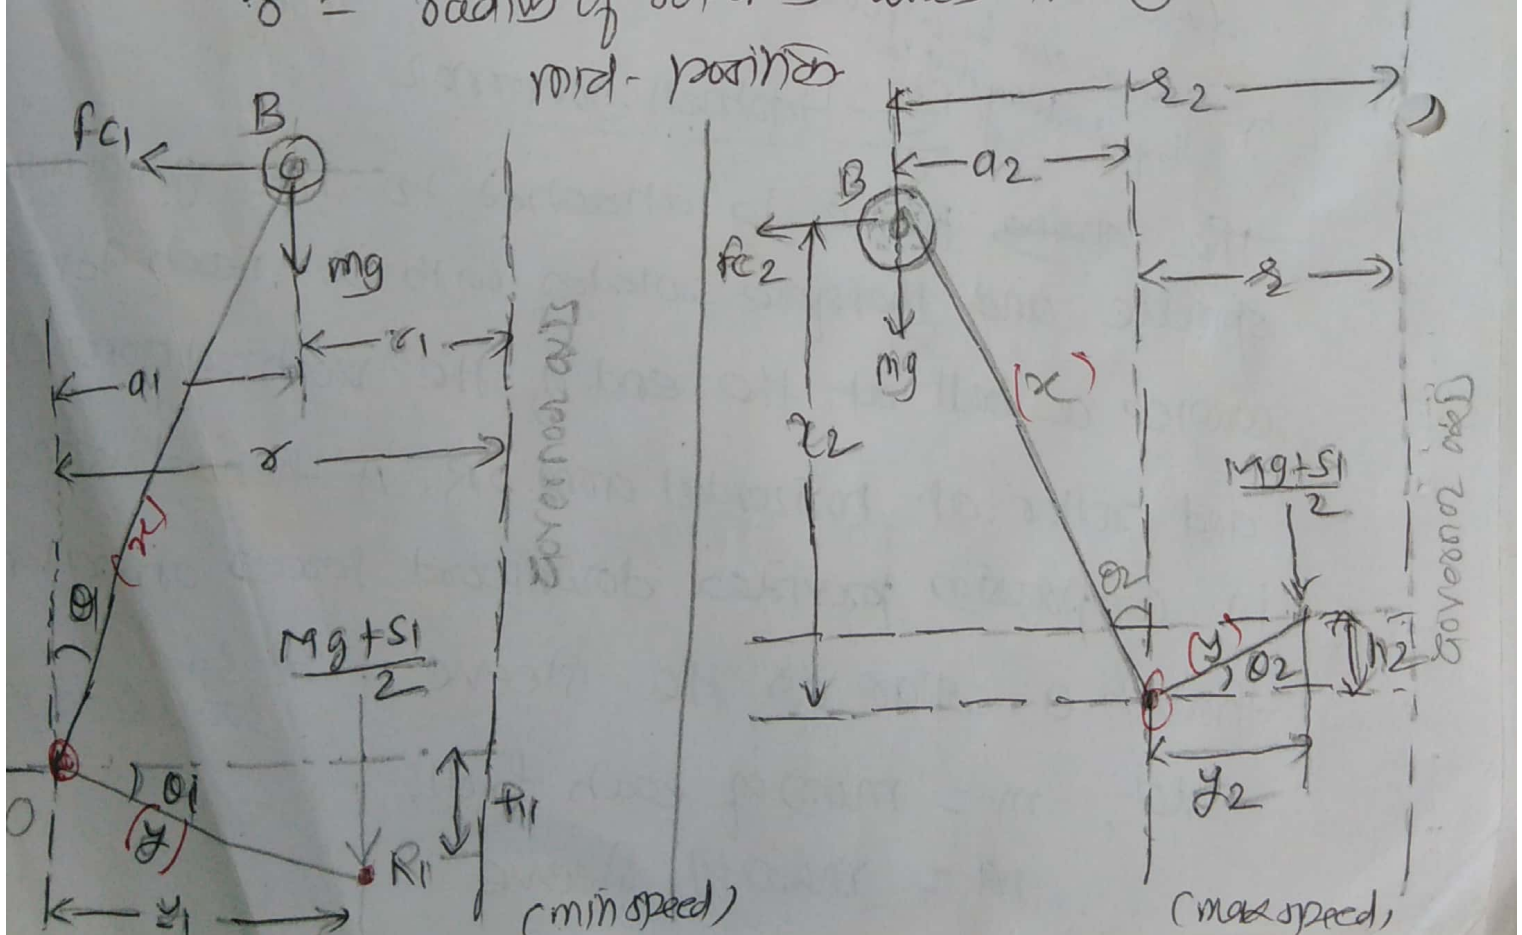 mid-position
Fc1
B
mg
r1
a1
r
(x)
θ1
Mg+S1
2
θ1
(y)
h1
R1
y1
O
Governor axis
(min speed)
r2
a2
B
Fc2
r
mg
(x)
x2
Mg+S1
2
θ2
(y)
θ2
h2
y2
Governor axis
(max speed)